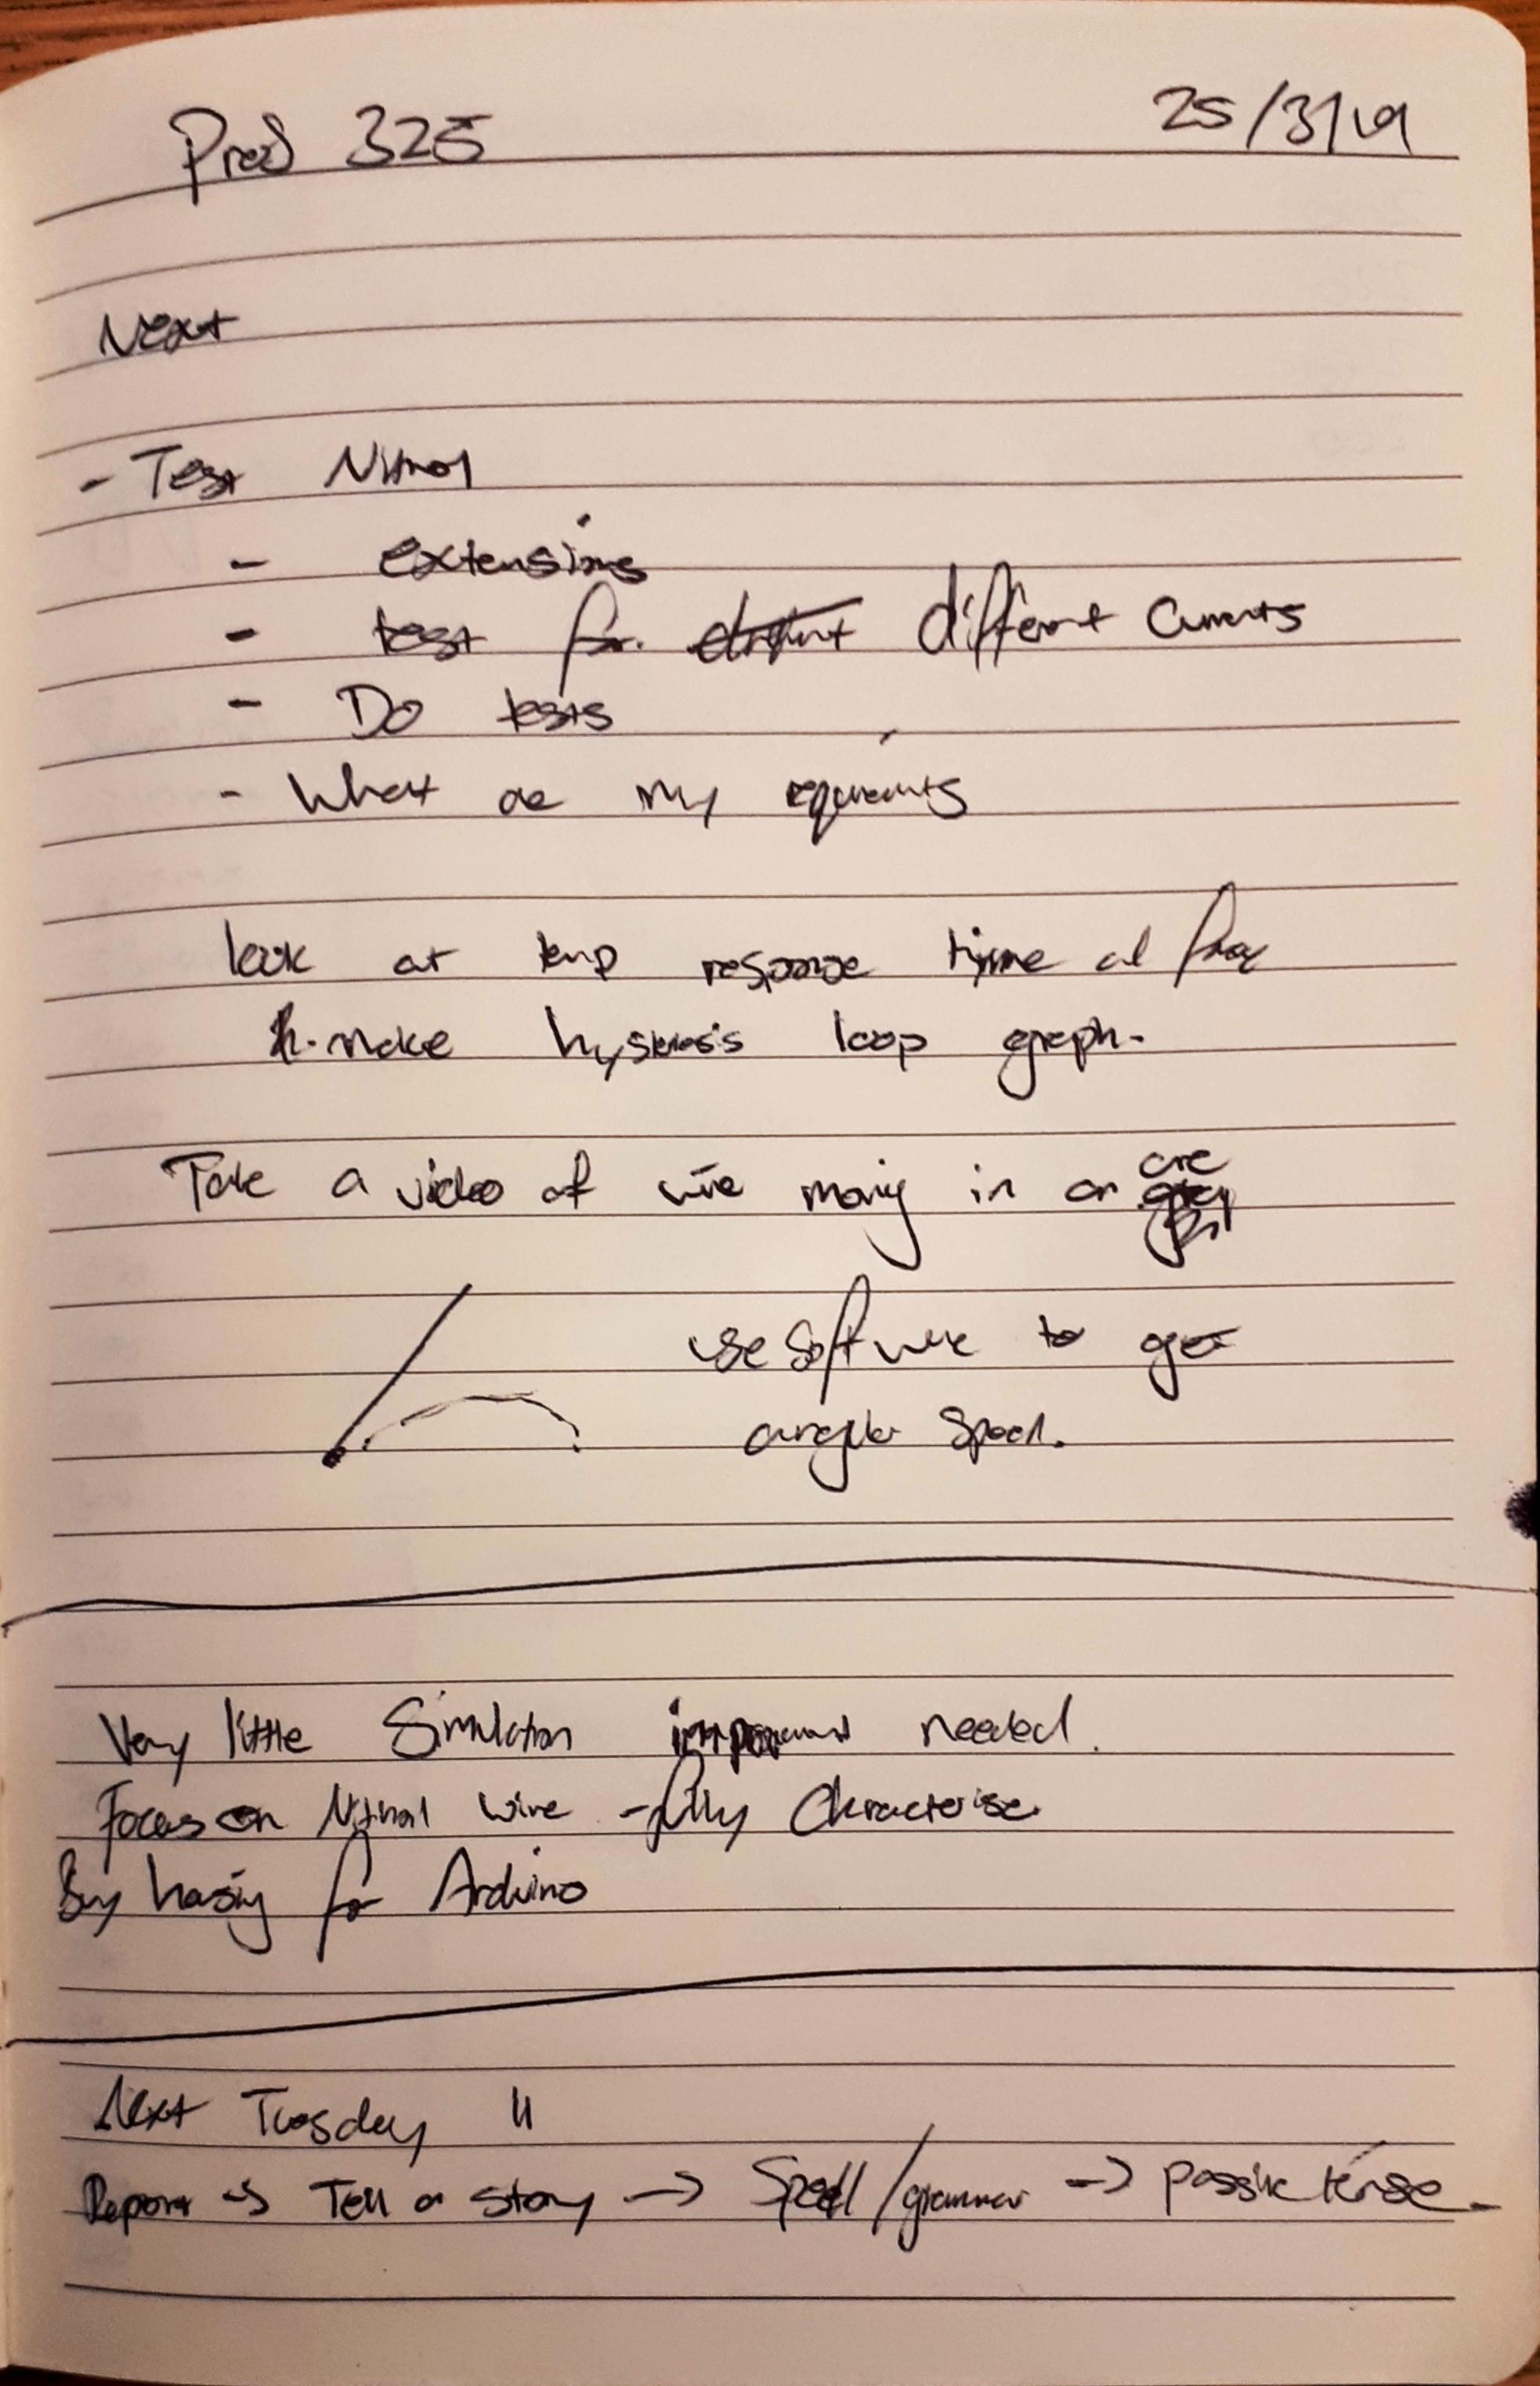 Prod 325 25/3/19
Next
- Test Nitinol
- extensions
- test for different currents
- Do tests
- What are my requirements
look at temp response time at
make hysteresis loop graph.
Take a video of wire moving in an arc
use software to get
angular speed.
Very little Simulation improvement needed.
Focus on Nitinol wire - fully characterise
Buy housing for Arduino
Next Tuesday 11
Report → Tell a story → Spell/grammar → passive tense.